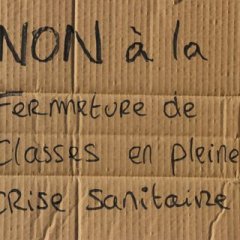 NON à la
Fermeture de
Classes en pleine
crise sanitaire